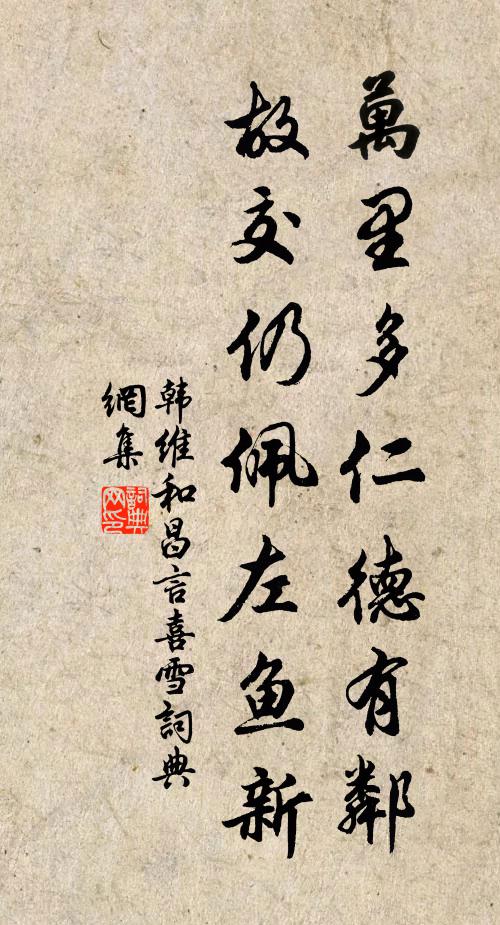 萬里多仁德有鄰
故交仍佩左鱼新
韩维和昌言喜雪詞典
網集
詞典网印